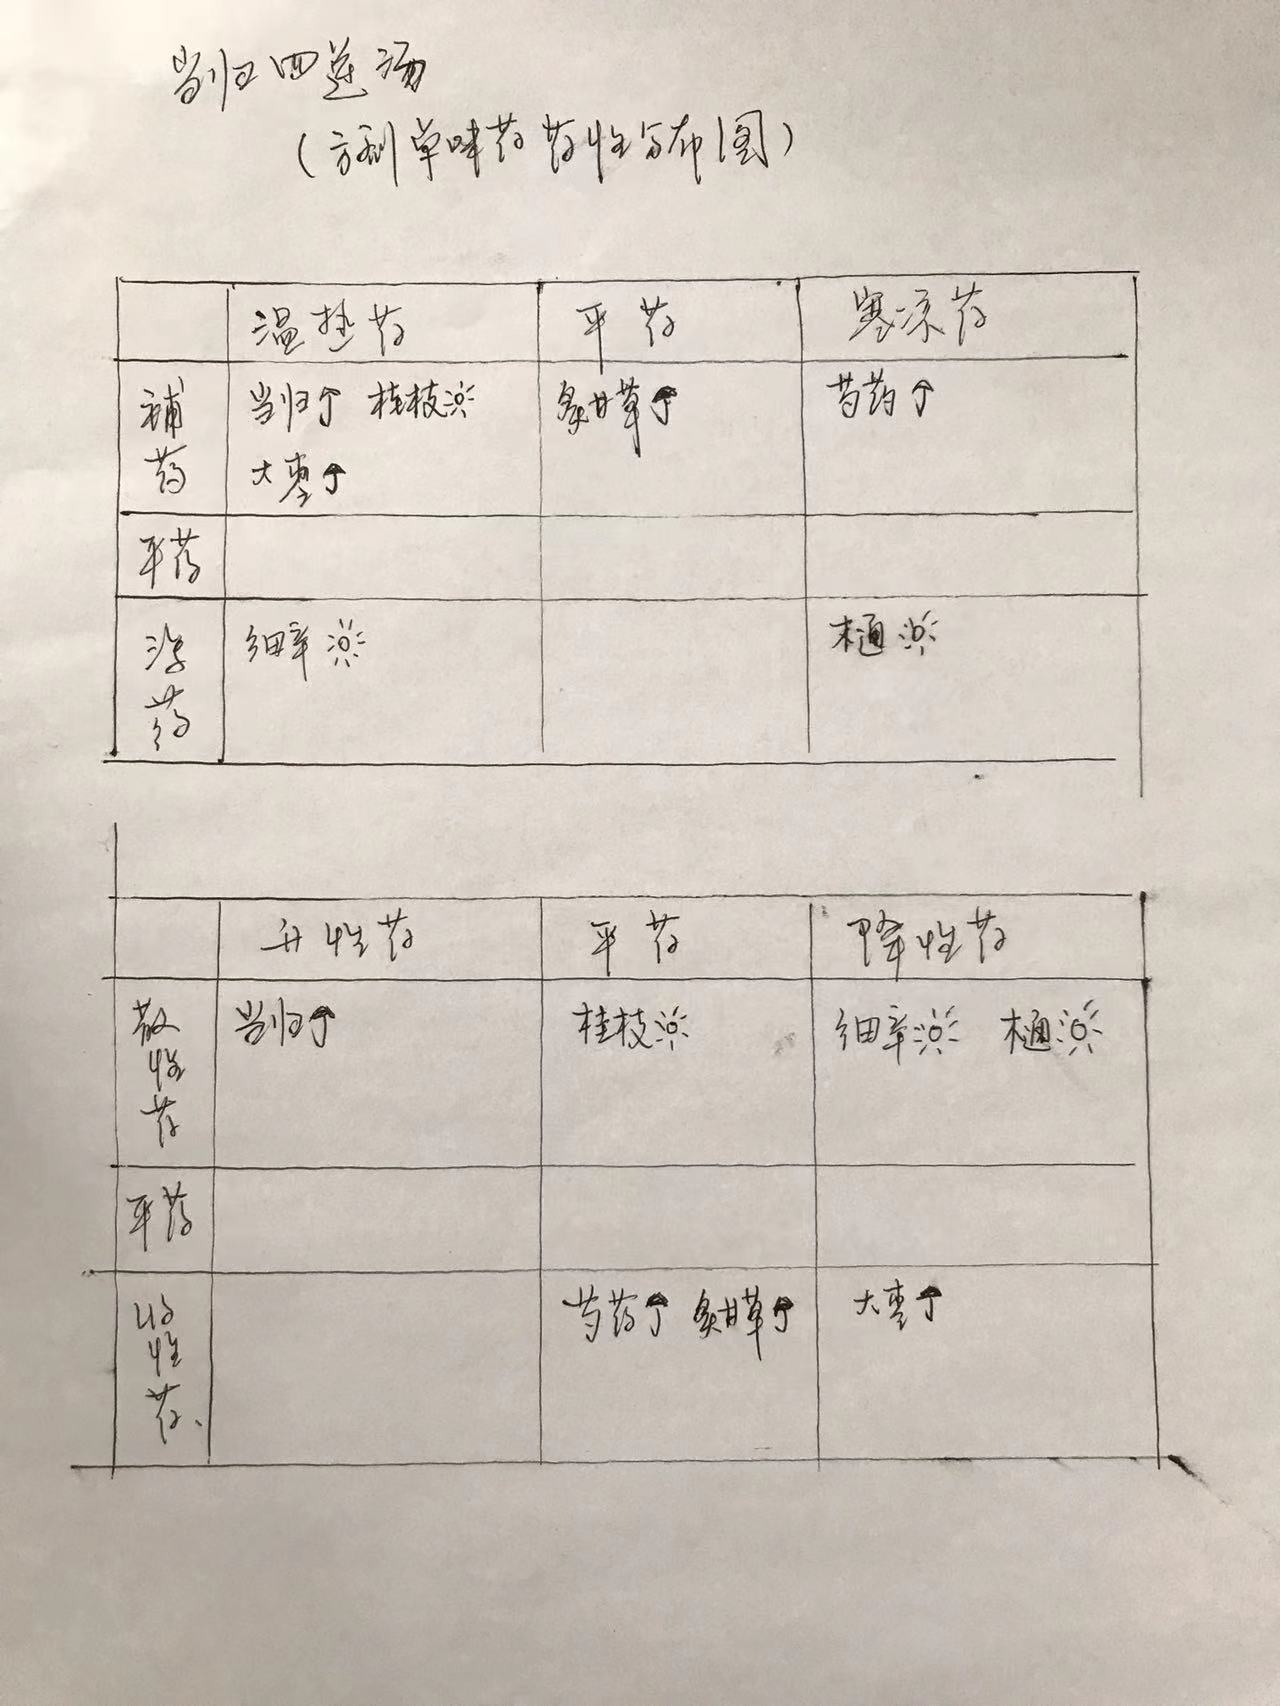 当归四逆汤
(方剂单味药药性分布图)
温热药 平药 寒凉药
補药 当归 桂枝 炙甘草 芍药
大枣
平药
泻药 细辛 木通
升性药 平药 降性药
散性药 当归 桂枝 细辛 木通
平药
收性药、 芍药 炙甘草 大枣